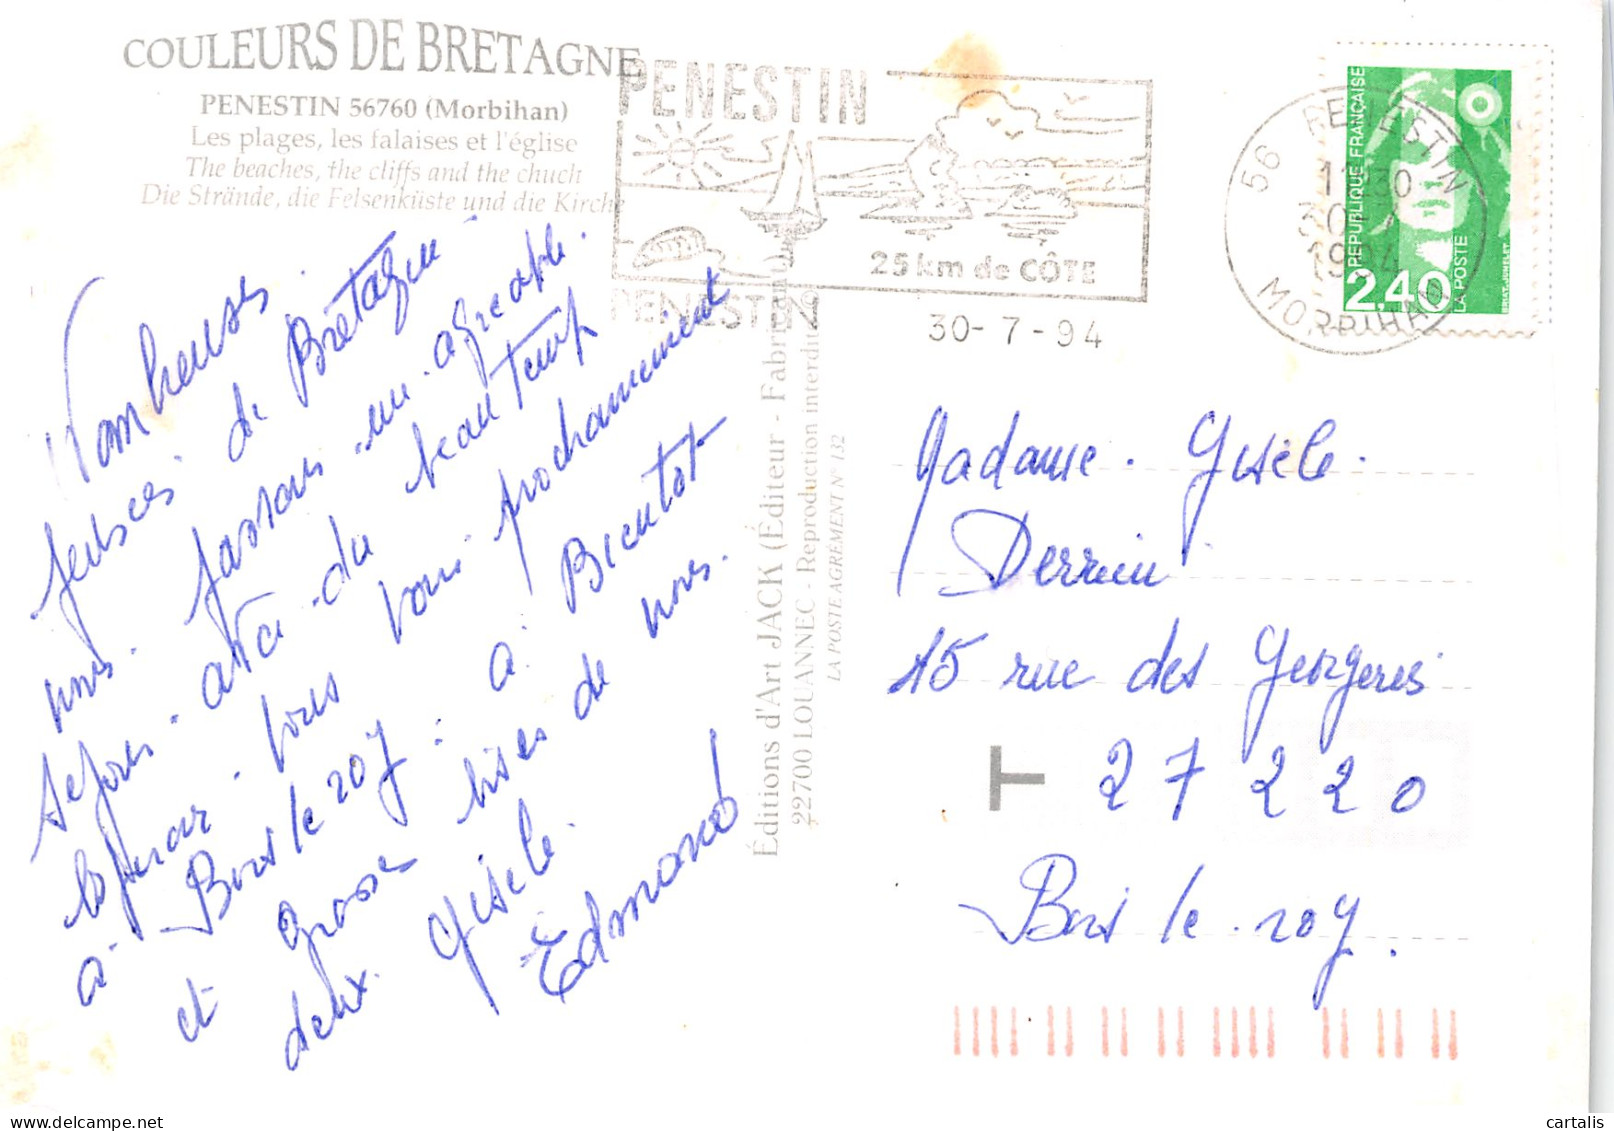 COULEURS DE BRETAGNE
PENESTIN 56760 (Morbihan)
Les plages, les falaises et l'église
The beaches, the cliffs and the chuch
Die Strände, die Felsenküste und die Kirche
PENESTIN
25 km de CÔTE
PENESTIN
30-7-94
56 PENESTIN
11H30
1994
MORBIHAN
RÉPUBLIQUE FRANÇAISE
2,40
LA POSTE
BRIAT-JUMELET
pensées de Bretagne
nous passons un agreable
sejour avec du beau temp
vous voir prochainement
a Bois le roy. a Bientot
et grosses bises de nous
deux. Gisèle.
Edmond
Éditions d'Art JACK (Éditeur - Fabricant)
22700 LOUANNEC - Reproduction interdite
LA POSTE AGREMENT N° 132
Madame. Gisèle.
Derrien
15 rue des
T 27220
Bois le roy.
cartalis